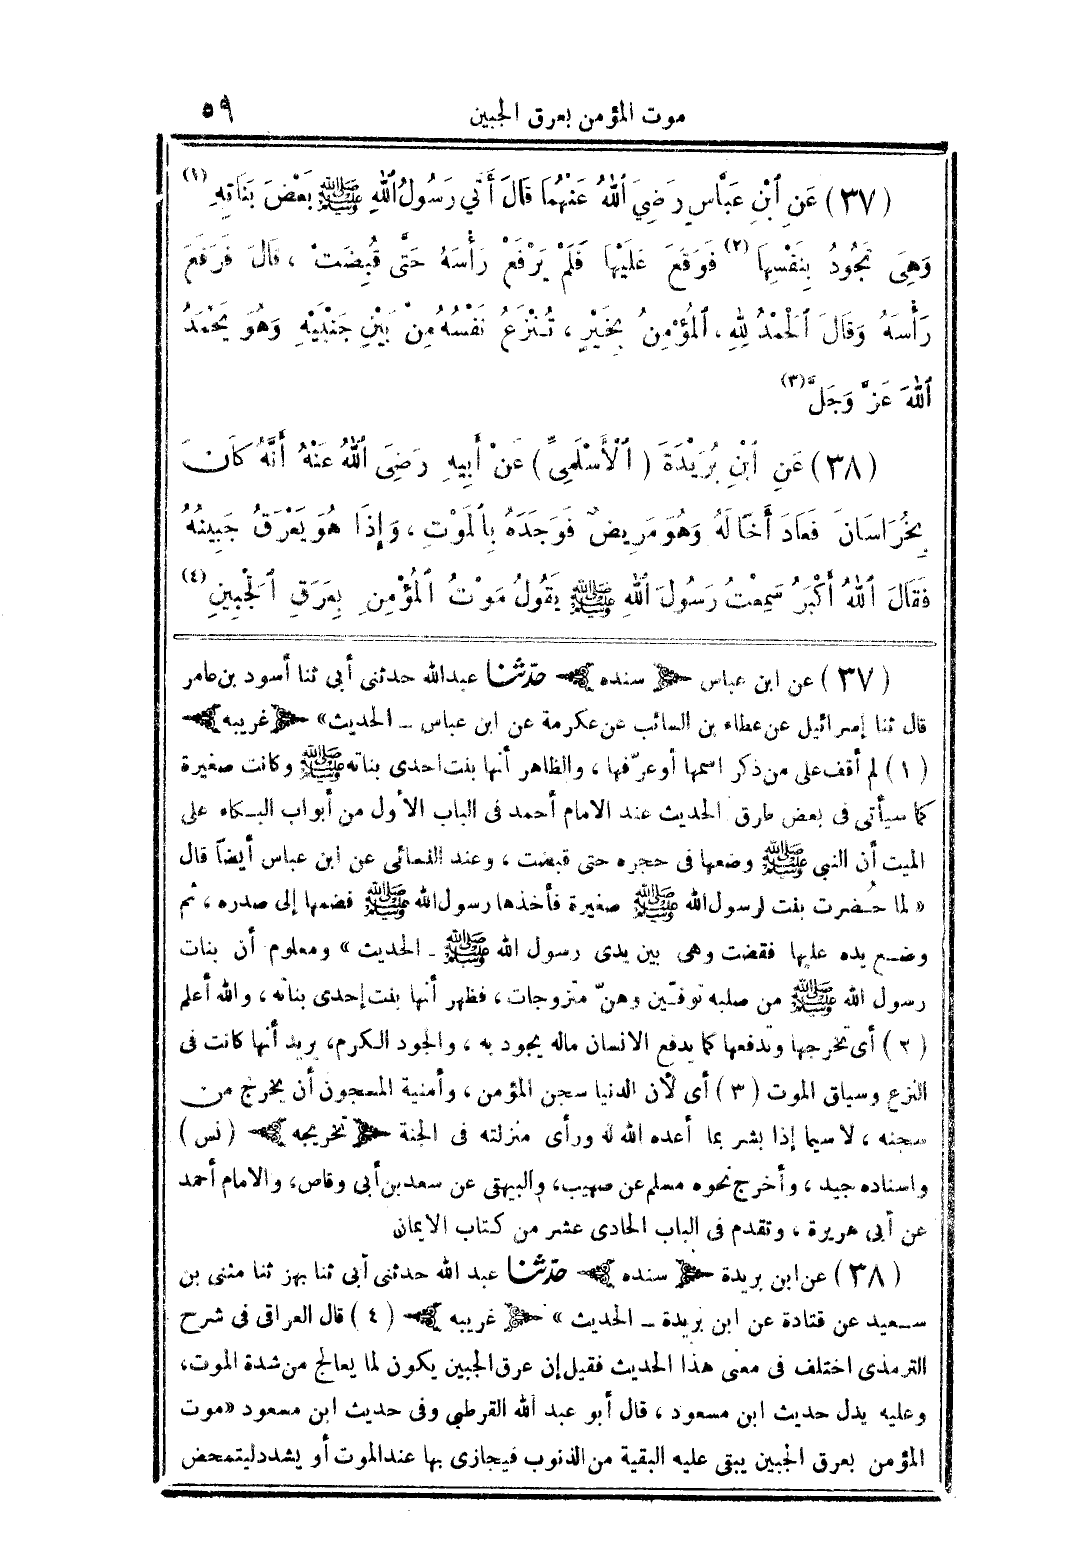 موت المؤمن بعرق الجبين ٥٩
(٣٧) عَنِ ٱبْنِ عَبَّاسٍ رَضِيَ ٱللهُ عَنْهُمَا قَالَ أَتَى رَسُولُ ٱللهِ ﷺ بَعْضَ بَنَاتِهِ (١)
وَهِيَ تَجُودُ بِنَفْسِهَا (٢) فَوَقَعَ عَلَيْهَا فَلَمْ يَرْفَعْ رَأْسَهُ حَتَّى قُبِضَتْ ، قَالَ فَرَفَعَ
رَأْسَهُ وَقَالَ ٱلْحَمْدُ لِلهِ ، ٱلْمُؤْمِنُ بِخَيْرٍ ، تُنْزَعُ نَفْسُهُ مِنْ بَيْنِ جَنْبَيْهِ وَهُوَ يَحْمَدُ
ٱللهَ عَزَّ وَجَلَّ (٣)
(٣٨) عَنِ ٱبْنِ بُرَيْدَةَ ( ٱلْأَسْلَمِيِّ ) عَنْ أَبِيهِ رَضِيَ ٱللهُ عَنْهُ أَنَّهُ كَانَ
بِخُرَاسَانَ فَعَادَ أَخًا لَهُ وَهُوَ مَرِيضٌ فَوَجَدَهُ بِالْمَوْتِ ، وَإِذَا هُوَ يَعْرَقُ جَبِينُهُ
فَقَالَ ٱللهُ أَكْبَرُ سَمِعْتُ رَسُولَ ٱللهِ ﷺ يَقُولُ مَوْتُ ٱلْمُؤْمِنِ بِعَرَقِ ٱلْجَبِينِ (٤)
(٣٧) عن ابن عباس ﴿ سنده ﴾ حدّثنا عبدالله حدثنى أبى ثنا أسود بن عامر
قال ثنا إسرائيل عن عطاء بن السائب عن عكرمة عن ابن عباس ــ الحديث» ﴿ غريبه ﴾
(١) لم أقف على من ذكر اسمها أو عرّفها ، والظاهر أنها بنت احدى بناته ﷺ وكانت صغيرة
كما سيأتى فى بعض طرق الحديث عند الامام أحمد فى الباب الأول من أبواب البكاء على
الميت أن النبي ﷺ وضعها فى حجره حتى قبضت ، وعند النسائى عن ابن عباس أيضاً قال
« لما حُضرت بنت لرسول الله ﷺ صغيرة فأخذها رسول الله ﷺ فضمها إلى صدره ، ثم
وضع يده عليها فقضت وهى بين يدى رسول الله ﷺ ـ الحديث » ومعلوم أن بنات
رسول الله ﷺ من صلبه توفّين وهنّ متزوجات ، فظهر أنها بنت إحدى بناته ، والله أعلم
(٢) أى تخرجها وتدفعها كما يدفع الانسان ماله يجود به ، والجود الكرم، يريد أنها كانت فى
النزع وسياق الموت (٣) أى لأن الدنيا سجن المؤمن ، وأمنية المسجون أن يخرج من
سجنه ، لا سيما إذا بشر بما أعده الله له ورأى منزلته فى الجنة ﴿ تخريجه ﴾ (نس)
واسناده جيد ، وأخرج نحوه مسلم عن صهيب، والبيهقى عن سعد بن أبى وقاص، والامام أحمد
عن أبى هريرة ، وتقدم فى الباب الحادى عشر من كتاب الايمان
(٣٨) عن ابن بريدة ﴿ سنده ﴾ حدّثنا عبد الله حدثنى أبى ثنا بهز ثنا مثنى بن
سعيد عن قتادة عن ابن بريدة ــ الحديث » ﴿ غريبه ﴾ (٤) قال العراقى فى شرح
الترمذى اختلف فى معنى هذا الحديث فقيل إن عرق الجبين يكون لما يعالج من شدة الموت،
وعليه يدل حديث ابن مسعود ، قال أبو عبد الله القرطبي وفى حديث ابن مسعود «موت
المؤمن بعرق الجبين يبقى عليه البقية من الذنوب فيجازى بها عند الموت أو يشدد ليتمحض